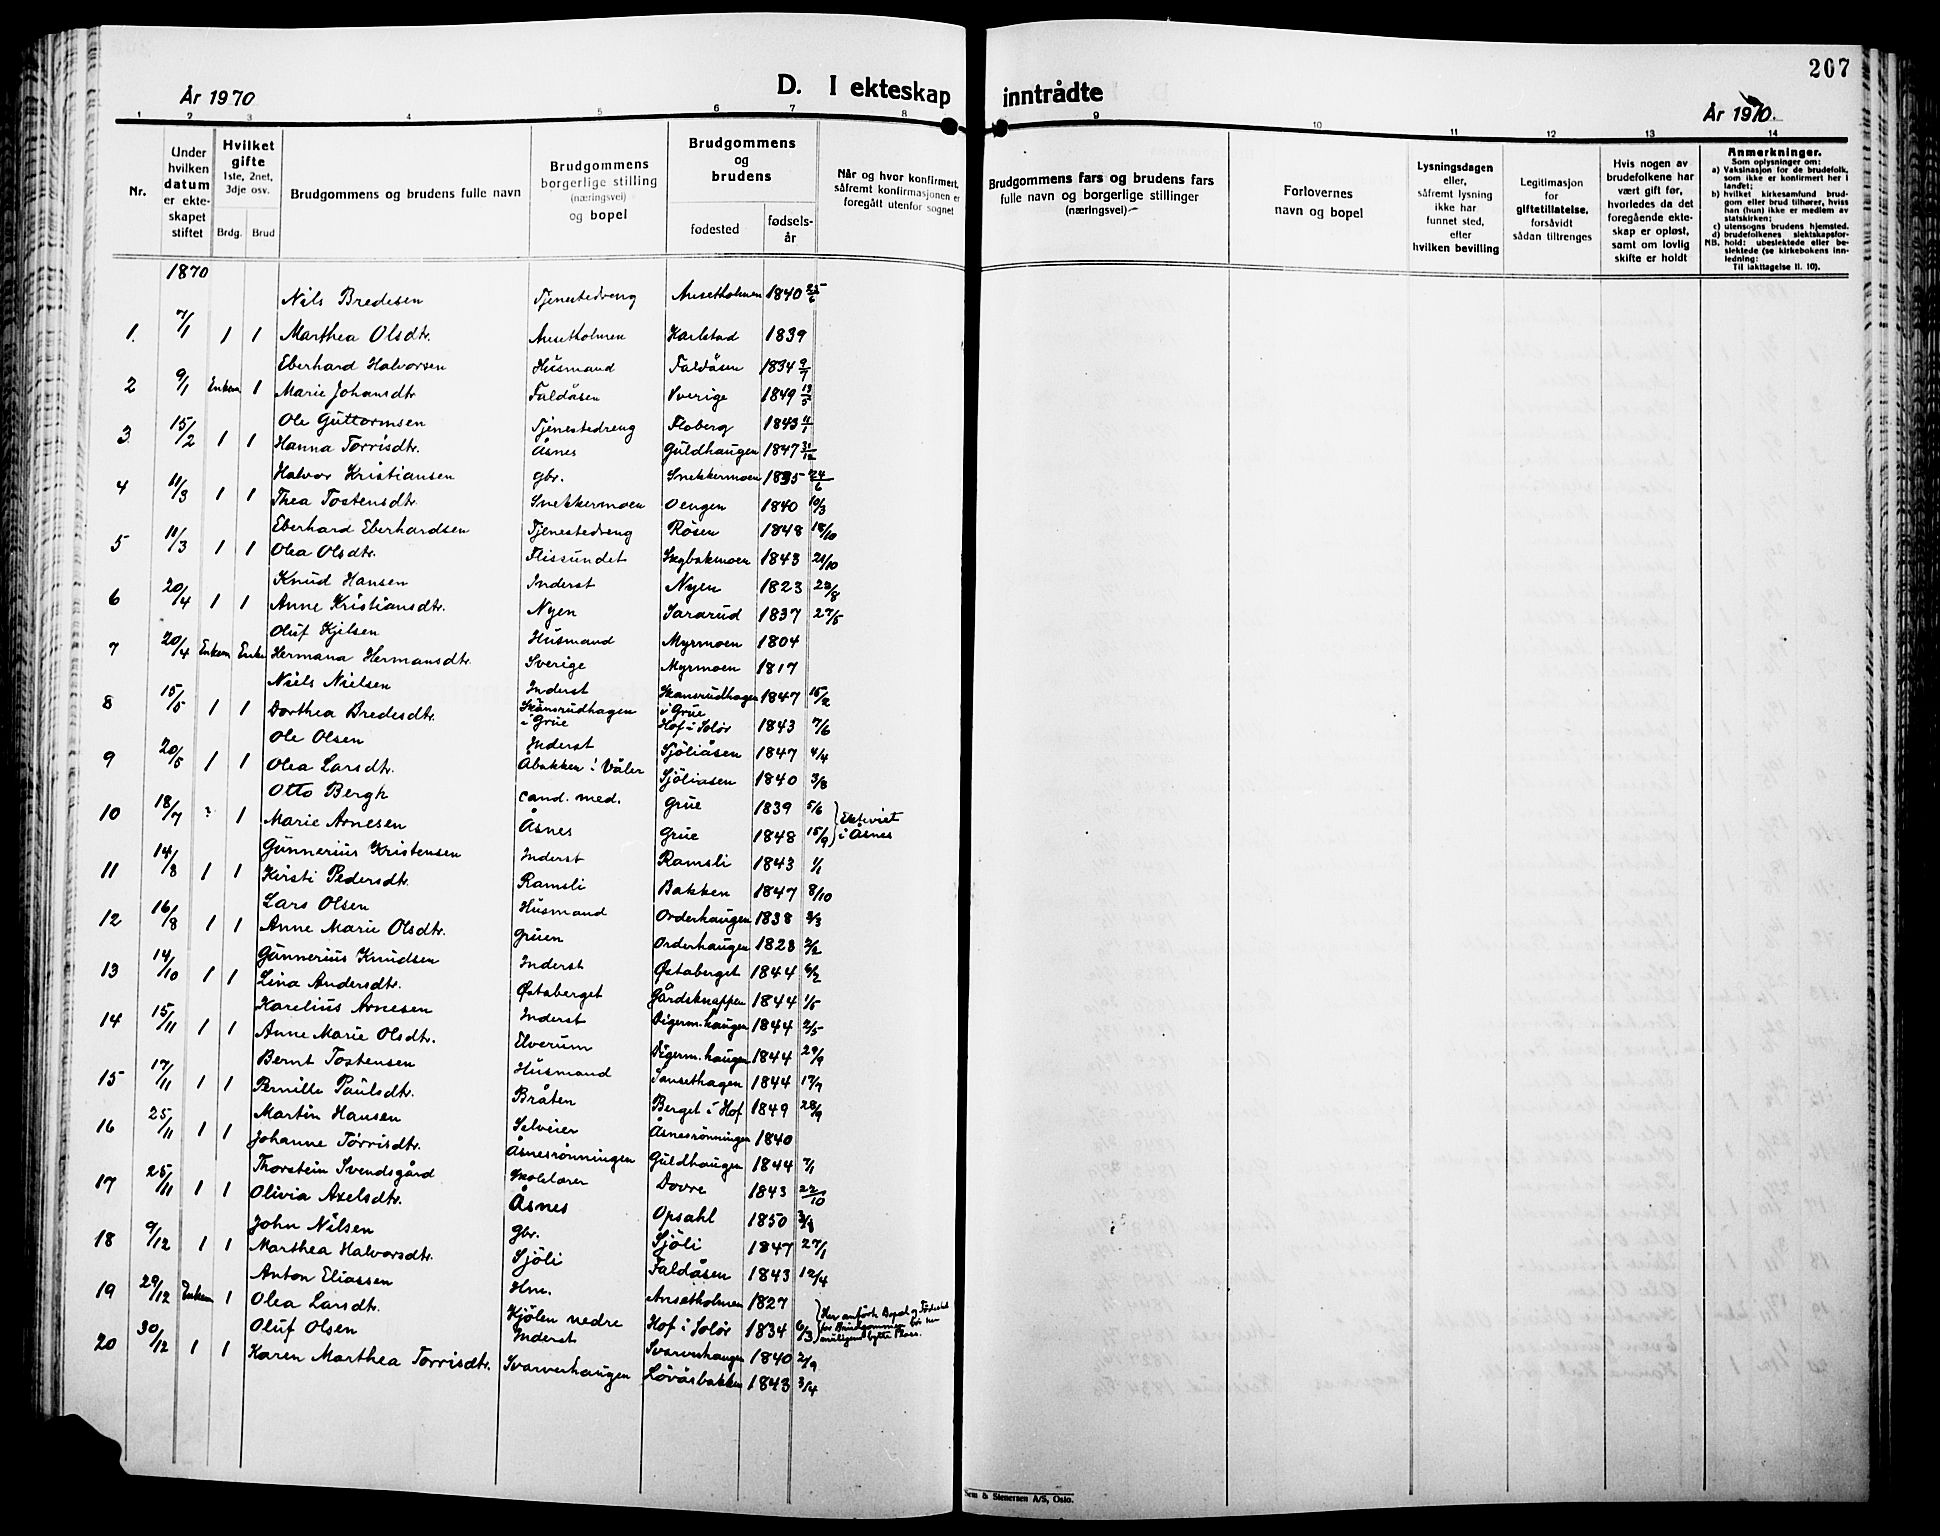 207
År 1970
D. I ekteskap inntrådte
År 1970.
1 2 3 4 5 6 7 8 9 10 11 12 13 14
Nr.
Under hvilken datum er ekteskapet stiftet
Hvilket gifte 1ste, 2net, 3dje osv.
Brdg. Brud
Brudgommens og brudens fulle navn
Brudgommens borgerlige stilling (næringsvei) og bopel
Brudgommens og brudens
fødested
fødselsår
Når og hvor konfirmert, såfremt konfirmasjonen er foregått utenfor sognet
Brudgommens fars og brudens fars fulle navn og borgerlige stillinger (næringsvei)
Forlovernes navn og bopel
Lysningsdagen eller, såfremt lysning ikke har funnet sted, efter hvilken bevilling
Legitimasjon for giftetillatelse, forsåvidt sådan tiltrenges
Hvis nogen av brudefolkene har vært gift før, hvorledes da det foregående ekteskap er opløst, samt om lovlig skifte er holdt
Anmerkninger.
Som oplysninger om:
a) Vaksinasjon for de brudefolk, som ikke er konfirmert her i landet;
b) hvilket kirkesamfund brudgom eller brud tilhører, hviss han (hun) ikke er medlem av statskirken;
c) utensogns brudens hjemsted.
d) brudefolkenes slektskapsforhold: ubeslektede eller beslektede (se kirkebokens innledning:
NB.
Til iakttagelse II. 10).
1870
Nils Bredesen Tjenestedreng Ansetholmen 1840 25/6
1. 7/1 1 1 Marthea Olsdtr. Ansetholmen Karlstad 1839
Eberhard Halvorsen Husmand Faldåsen 1834 9/7
2 9/1 Enkem 1 Marie Johansdtr Faldåsen Sverige 1849 13/5
Ole Guttormsen Tjenestedreng Floberg 1843 4/1
3 15/2 1 1 Hanna Torrisdtr. Åsnes Guldhaugen 1847 31/12
Halvor Kristiansen gbr. Snekkermoen 1835 24/6
4 11/3 1 1 Thea Tostensdtr Snekkermoen Oengen 1840 10/3
Eberhard Eberhardsen Tjenestedreng Røsen 1848 18/10
5 11/3 1 1 Olea Olsdtr. Flissundet Skybakmoen 1843 21/10
Knud Hansen Inderst Nyen 1823 23/8
6 20/4 1 1 Anne Kristiansdtr. Nyen Sararud 1837 27/5
Oluf Kjelsen Husmand Myrmoen 1804
7 20/4 Enkem Enke Hermana Hermansdtr. Sverige Myrmoen 1817
Niels Nielsen Inderst Skansrudhagen i Grue 1847 15/2
8 15/5 1 1 Dorthea Bredesdtr. Skansrudhagen i Grue Hof i Solør 1843 7/6
Ole Olsen Inderst Sjöliåsen 1847 4/4
9 20/5 1 1 Olea Larsdtr. Åbakken i Våler Sjöliåsen 1840 3/8
Otto Bergh cand. med. Grue 1839 5/6
10 18/7 ? 1 Marie Arnesen Åsnes Grue 1848 15/9 } Ektviet i Åsnes
Gunnerius Kristensen Inderst Ramsli 1843 1/1
11 14/8 1 1 Kirsti Pedersdtr. Ramsli Bakken 1847 8/10
Lars Olsen Husmand Orderhaugen 1838 3/3
12 16/8 1 1 Anne Marie Olsdtr. Gruen Orderhaugen 1823 2/2
Gunnerius Knudsen Inderst Østaberget 1844 6/2
13 14/10 1 1 Lina Andersdtr. Østaberget Gårdsknappen 1844 1/5
Karelius Arnesen Inderst Digerm.haugen 1844 2/5
14 15/11 1 1 Anne Marie Olsdtr. Elverum Digerm.haugen 1844 29/9
Bernt Tostensen Husmand Sansethagen 1844 17/7
15 17/11 1 1 Pernille Paulsdtr. Bråten Berget i Hof 1849 28/9
Martin Hansen Selveier Åsnesrønningen 1840
16 25/11 1 1 Johanne Torrisdtr. Åsnesrønningen Guldhaugen 1844 7/1
Thorstein Svendsgård Skolelærer Dovre 1843 22/10
17 25/11 1 1 Olivia Axelsdtr. Åsnes Opsahl 1850
John Nilsen gbr. Sjöli 1847 27/1
18 9/12 1 1 Marthea Halvorsdtr. Sjöli Faldåsen 1843 12/4
Anton Eliassen Hm. Ansetholmen 1827
19 29/12 Enkem 1 Olea Larsdtr. Kjölen nedre Hof i Solør 1834 6/3 } Her anførte Bopel og Fødested for Brudgommen bør muligens bytte Plass.
Oluf Olsen Inderst Svarverhaugen 1840 2/9
20 30/12 1 1 Karen Marthea Torrisdtr. Svarverhaugen Løvåsbakken 1843 3/4
Sem & Stenersen A/S, Oslo.